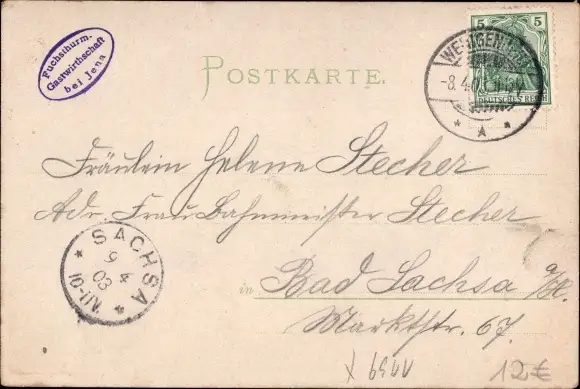 Fuchsthurm.
Gastwirthschaft
bei Jena
5 5
DEUTSCHES REICH
-8.4.0
* A *
POSTKARTE.
Fräulein Helene Stecher
Adr. Frau Bahnmeister Stecher
in Bad Sachsa a/H.
Marktstr. 67.
* SACHSA *
9
4
03
10-11 V.
12 €